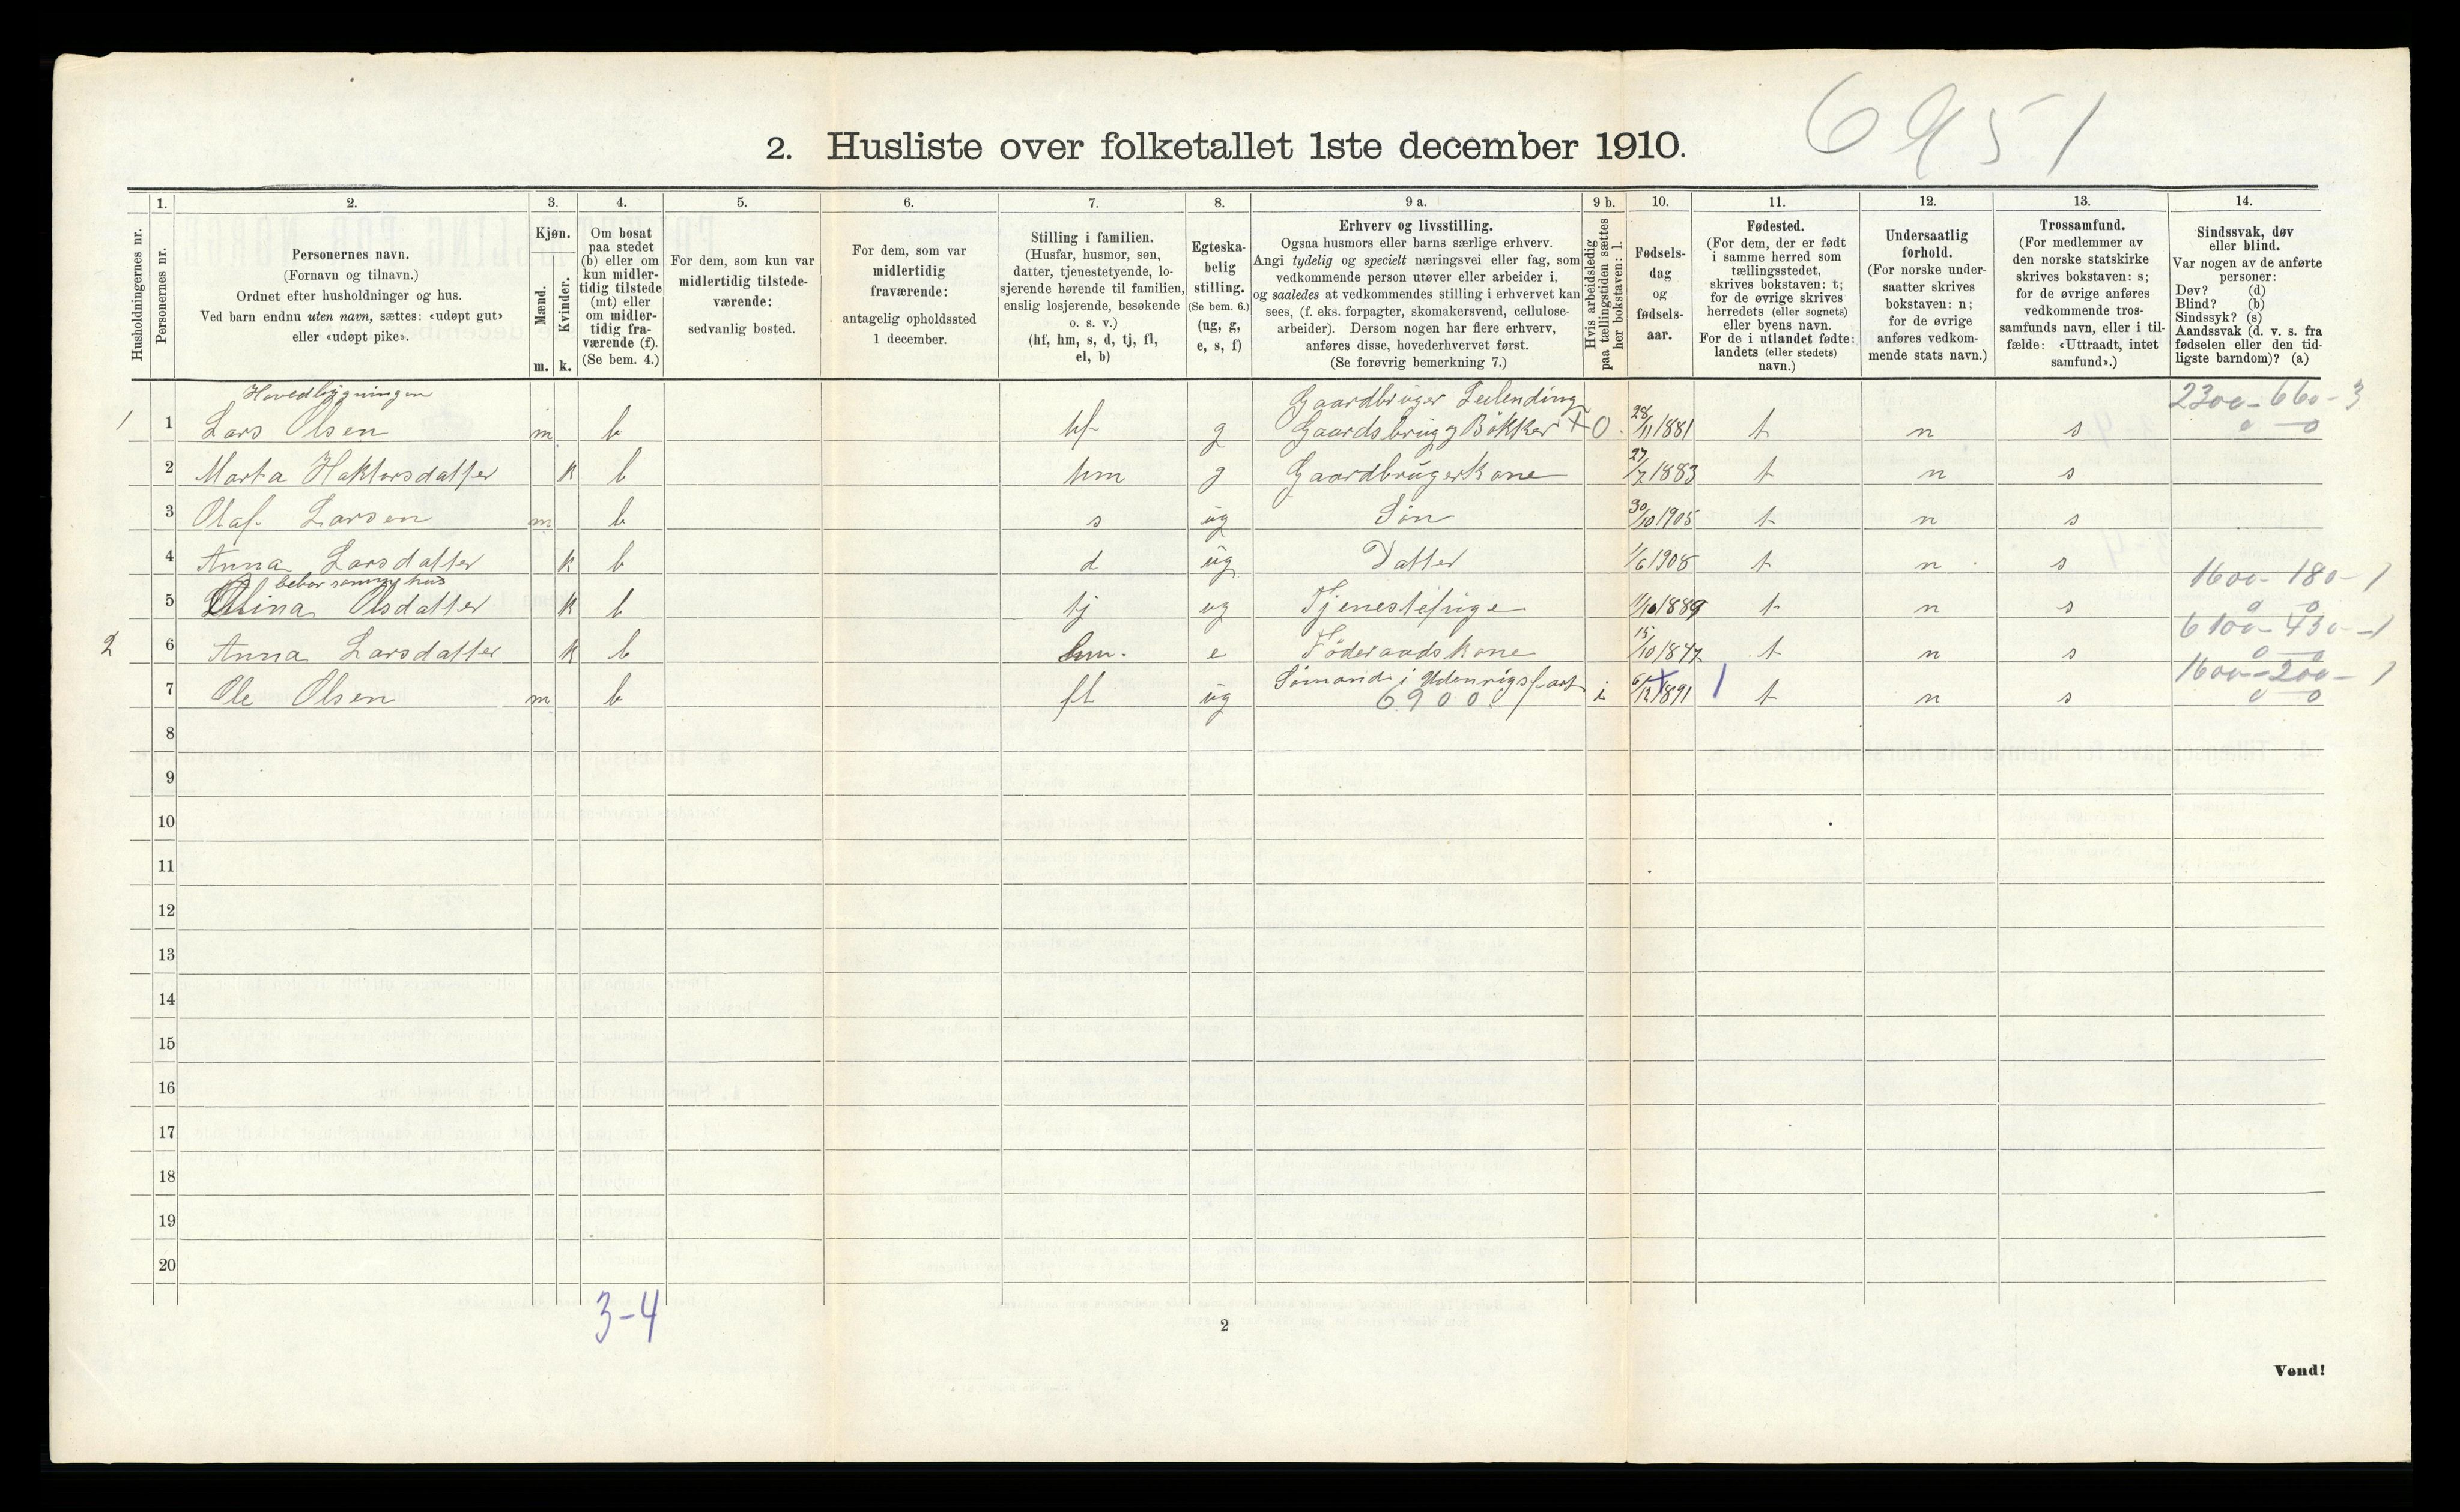 6951
2. Husliste over folketallet 1ste december 1910.
Husholdningernes nr.
1.
Personernes nr.
2.
Personernes navn.
(Fornavn og tilnavn.)
Ordnet efter husholdninger og hus.
Ved barn endnu uten navn, sættes: «udøpt gut»
eller «udøpt pike».
3.
Kjøn.
Mænd.
Kvinder.
m. k.
4.
Om bosat
paa stedet
(b) eller om
kun midler-
tidig tilstede
(mt) eller
om midler-
tidig fra-
værende (f).
(Se bem. 4.)
5.
For dem, som kun var
midlertidig tilstede-
værende:
sedvanlig bosted.
6.
For dem, som var
midlertidig
fraværende:
antagelig opholdssted
1 december.
7.
Stilling i familien.
(Husfar, husmor, søn,
datter, tjenestetyende, lo-
sjerende hørende til familien,
enslig losjerende, besøkende
o. s. v.)
(hf, hm, s, d, tj, fl,
el, b)
8.
Egteska-
belig
stilling.
(Se bem. 6.)
(ug, g,
e, s, f)
9 a.
Erhverv og livsstilling.
Ogsaa husmors eller barns særlige erhverv.
Angi tydelig og specielt næringsvei eller fag, som
vedkommende person utøver eller arbeider i,
og saaledes at vedkommendes stilling i erhvervet kan
sees, (f. eks. forpagter, skomakersvend, cellulose-
arbeider). Dersom nogen har flere erhverv,
anføres disse, hovederhvervet først.
(Se forøvrig bemerkning 7.)
9 b.
Hvis arbeidsledig
paa tællingstiden sættes
her bokstaven: l.
10.
Fødsels-
dag
og
fødsels-
aar.
11.
Fødested.
(For dem, der er født
i samme herred som
tællingsstedet,
skrives bokstaven: t;
for de øvrige skrives
herredets (eller sognets)
eller byens navn.
For de i utlandet fødte:
landets (eller stedets)
navn.)
12.
Undersaatlig
forhold.
(For norske under-
saatter skrives
bokstaven: n;
for de øvrige
anføres vedkom-
mende stats navn.)
13.
Trossamfund.
(For medlemmer av
den norske statskirke
skrives bokstaven: s;
for de øvrige anføres
vedkommende tros-
samfunds navn, eller i til-
fælde: «Uttraadt, intet
samfund».)
14.
Sindssvak, døv
eller blind.
Var nogen av de anførte
personer:
Døv? (d)
Blind? (b)
Sindssyk? (s)
Aandssvak (d. v. s. fra
fødselen eller den tid-
ligste barndom)? (a)
Hovedbygningen Gaardbruger Leilending 2300-660-3
1 1 Lars Olsen m b hf g Gaardsbrug Bökker + 0 28/11 1881 t n s 0 0
2 Marta k b hm g Gaardbrugerkone 27/7 1883 t n s
3 Olaf Larsen m b s ug Sön 30/10 1905 t n s
4 Anna Larsdatter k b d ug Datter 1/6 1908 t n s
bebor samme hus 1600-180-1
5 Olsdatter k b tj ug Tjenestepige 1889 t n s 0 0
6100-430-1
2 6 Anna Larsdatter k b hm. e Föderaadskone 15/10 1847 t n s 0 0
Sömand i Udenrigsfart 1600-200-1
7 Ole Olsen m b fl ug 6900 i 6/12 1891 1 t n s 0 0
8
9
10
11
12
13
14
15
16
17
18
19
20
3-4
2
Vend!